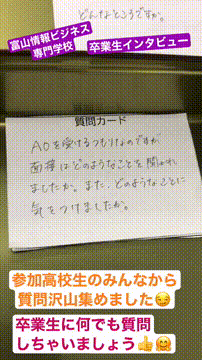 どんなところですか。
富山情報ビジネス
専門学校
卒業生インタビュー
質問カード
AOを受けるつもりなのですが
面接はどのようなことを聞かれ
ましたか。また、どのようなことに
気をつけましたか。
参加高校生のみんなから
質問沢山集めました😏
卒業生に何でも質問
しちゃいましょう👍🤗